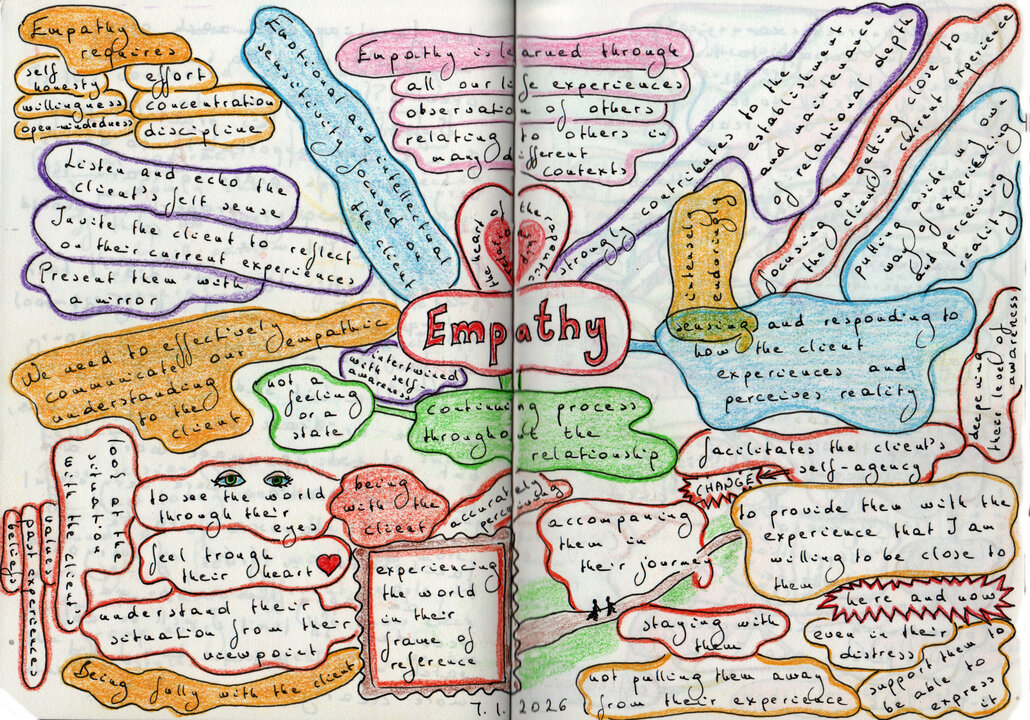 Empathy
requires
self
honesty
willingness
open-mindedness
effort
concentration
discipline
Emotional and intellectual
sensitivity focused on
the client
Empathy is learned through
all our life experiences
observation of others
relating to others in
many different
contexts
strongly contributes to the
establishment
and maintenance
of relational depth
focusing on getting close to
the client's current experience
putting aside my own
way of experiencing
and perceiving
reality
Listen and echo the
client's felt sense
Invite the client to reflect
on their current experiences
Present them with
a mirror
the heart of the
Empathy
intensely
enduringly
sensing and responding to
how the client
experiences and
perceives reality
deepening
their level of
awareness
We need to effectively
communicate our empathic
understanding
to the
client
intertwined
with self-
awareness
not a
feeling
or a
state
continuing process
throughout the
relationship
facilitates the client's
self-agency
CHANGE
look at the
situation
with the client's
values
past experiences
beliefs
to see the world
through their
eyes
feel trough
their heart
understand their
situation from their
viewpoint
Being fully with the client
being
with the
client
accurately
perceiving
experiencing
the world
in their
frame of
reference
accompaning
them in
their journey
to provide them with the
experience that I am
willing to be close to
them
here and now
staying with
them
even in their
distress
not pulling them away
from their experience
support them to
be able to
express
it
7.1. 2026